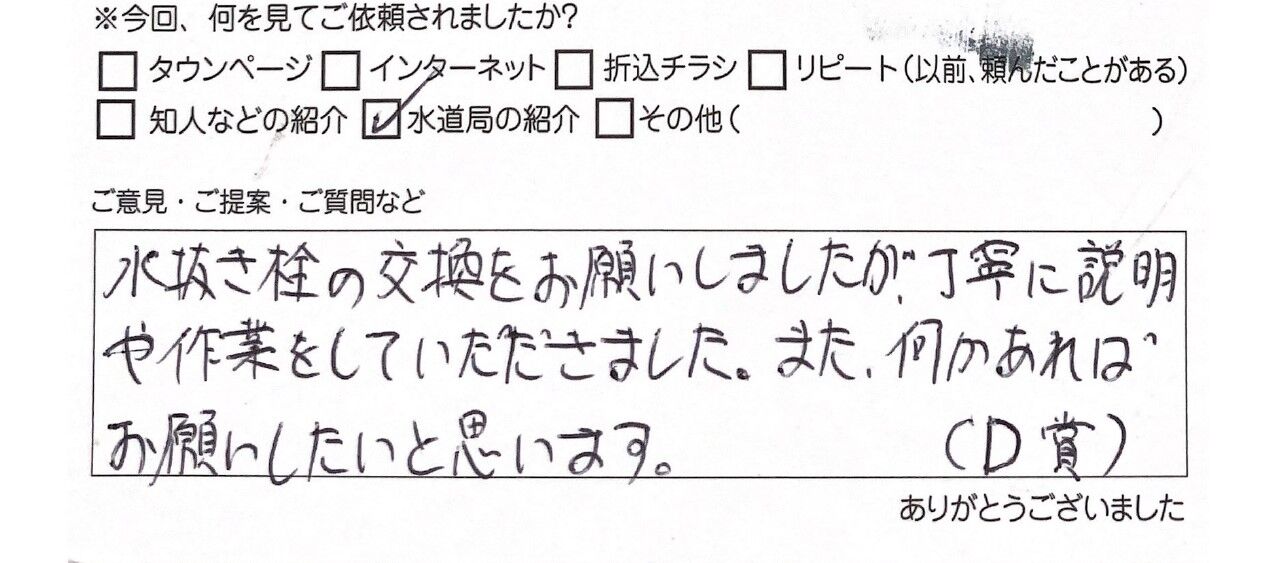 ※今回、何を見てご依頼されましたか?
□ タウンページ □ インターネット □ 折込チラシ □ リピート(以前、頼んだことがある)
□ 知人などの紹介 ☑ 水道局の紹介 □ その他( )
ご意見・ご提案・ご質問など
水抜き栓の交換をお願いしましたが、丁寧に説明
や作業をしていただきました。また、何かあれば
お願いしたいと思います。 (D賞)
ありがとうございました